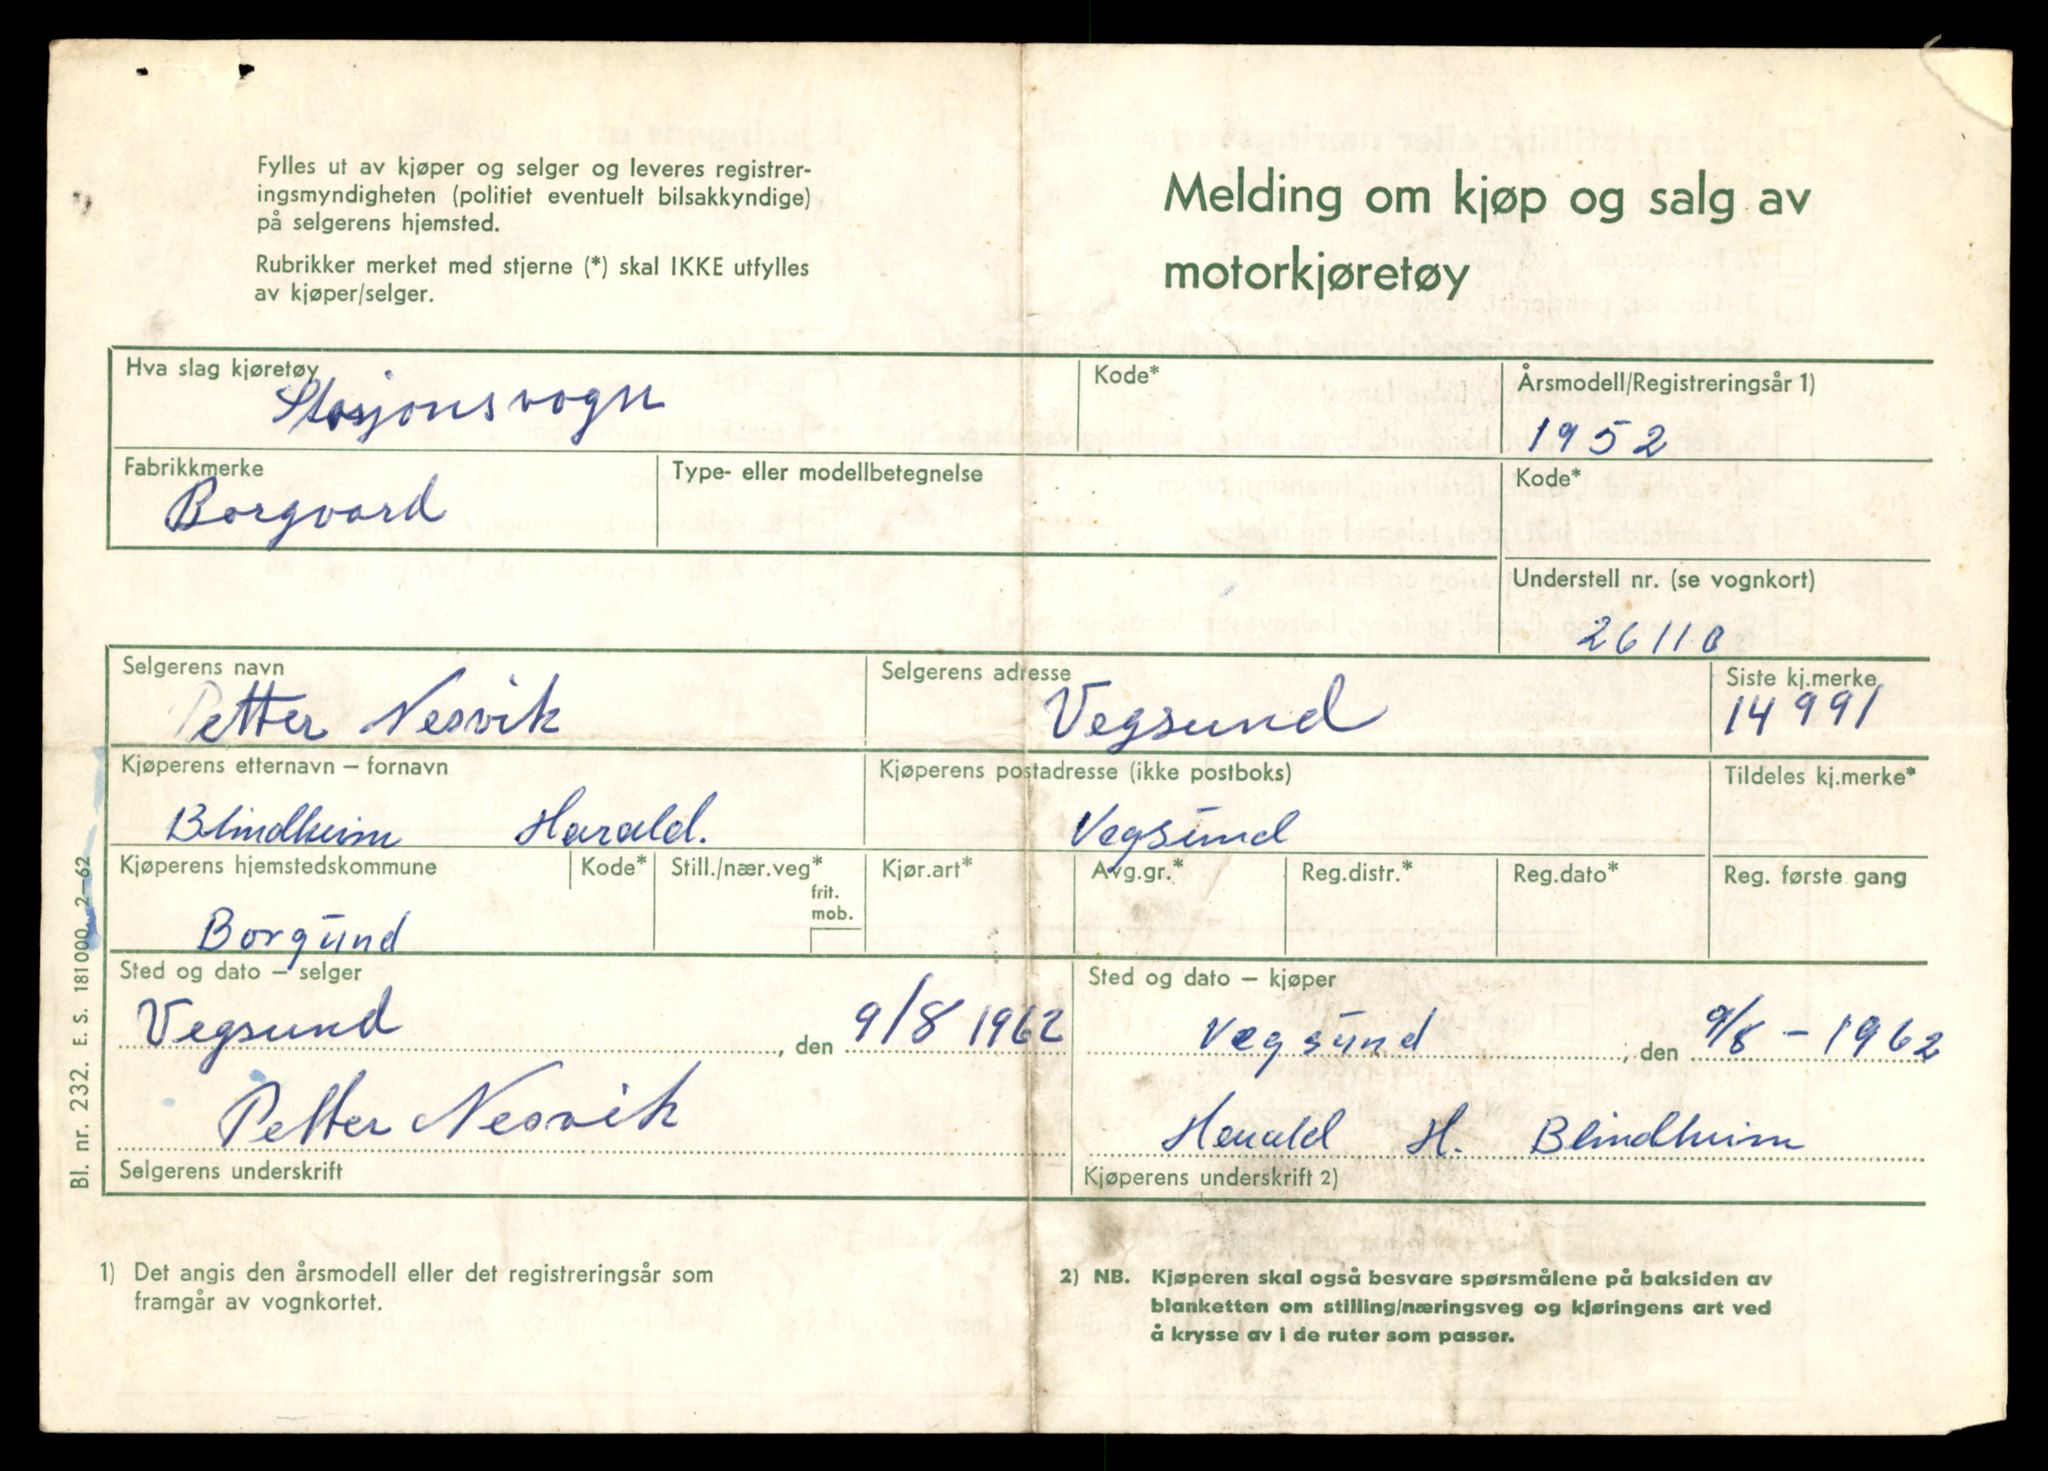 Fylles ut av kjøper og selger og leveres registrer-
ingsmyndigheten (politiet eventuelt bilsakkyndige)
på selgerens hjemsted.
Rubrikker merket med stjerne (*) skal IKKE utfylles
av kjøper/selger.
Melding om kjøp og salg av
motorkjøretøy
Hva slag kjøretøy
Stasjonsvogn
Kode*
Årsmodell/Registreringsår 1)
1952
Fabrikkmerke
Borgvard
Type- eller modellbetegnelse
Kode*
Understell nr. (se vognkort)
26110
Selgerens navn
Petter Nesvik
Selgerens adresse
Vegsund
Siste kj.merke
14991
Kjøperens etternavn – fornavn
Blindheim Harald.
Kjøperens postadresse (ikke postboks)
Vegsund
Tildeles kj.merke*
Kjøperens hjemstedskommune
Borgund
Kode*
Still./nær.veg*
frit.
mob.
Kjør.art*
Avg.gr.*
Reg.distr.*
Reg.dato*
Reg. første gang
Sted og dato – selger
Vegsund, den 9/8 1962
Petter Nesvik
Selgerens underskrift
Sted og dato – kjøper
Vegsund, den 9/8 - 1962
Harald H. Blindheim
Kjøperens underskrift 2)
Bl. nr. 232. E. S. 181000. 2–62
1) Det angis den årsmodell eller det registreringsår som
framgår av vognkortet.
2) NB. Kjøperen skal også besvare spørsmålene på baksiden av
blanketten om stilling/næringsveg og kjøringens art ved
å krysse av i de ruter som passer.